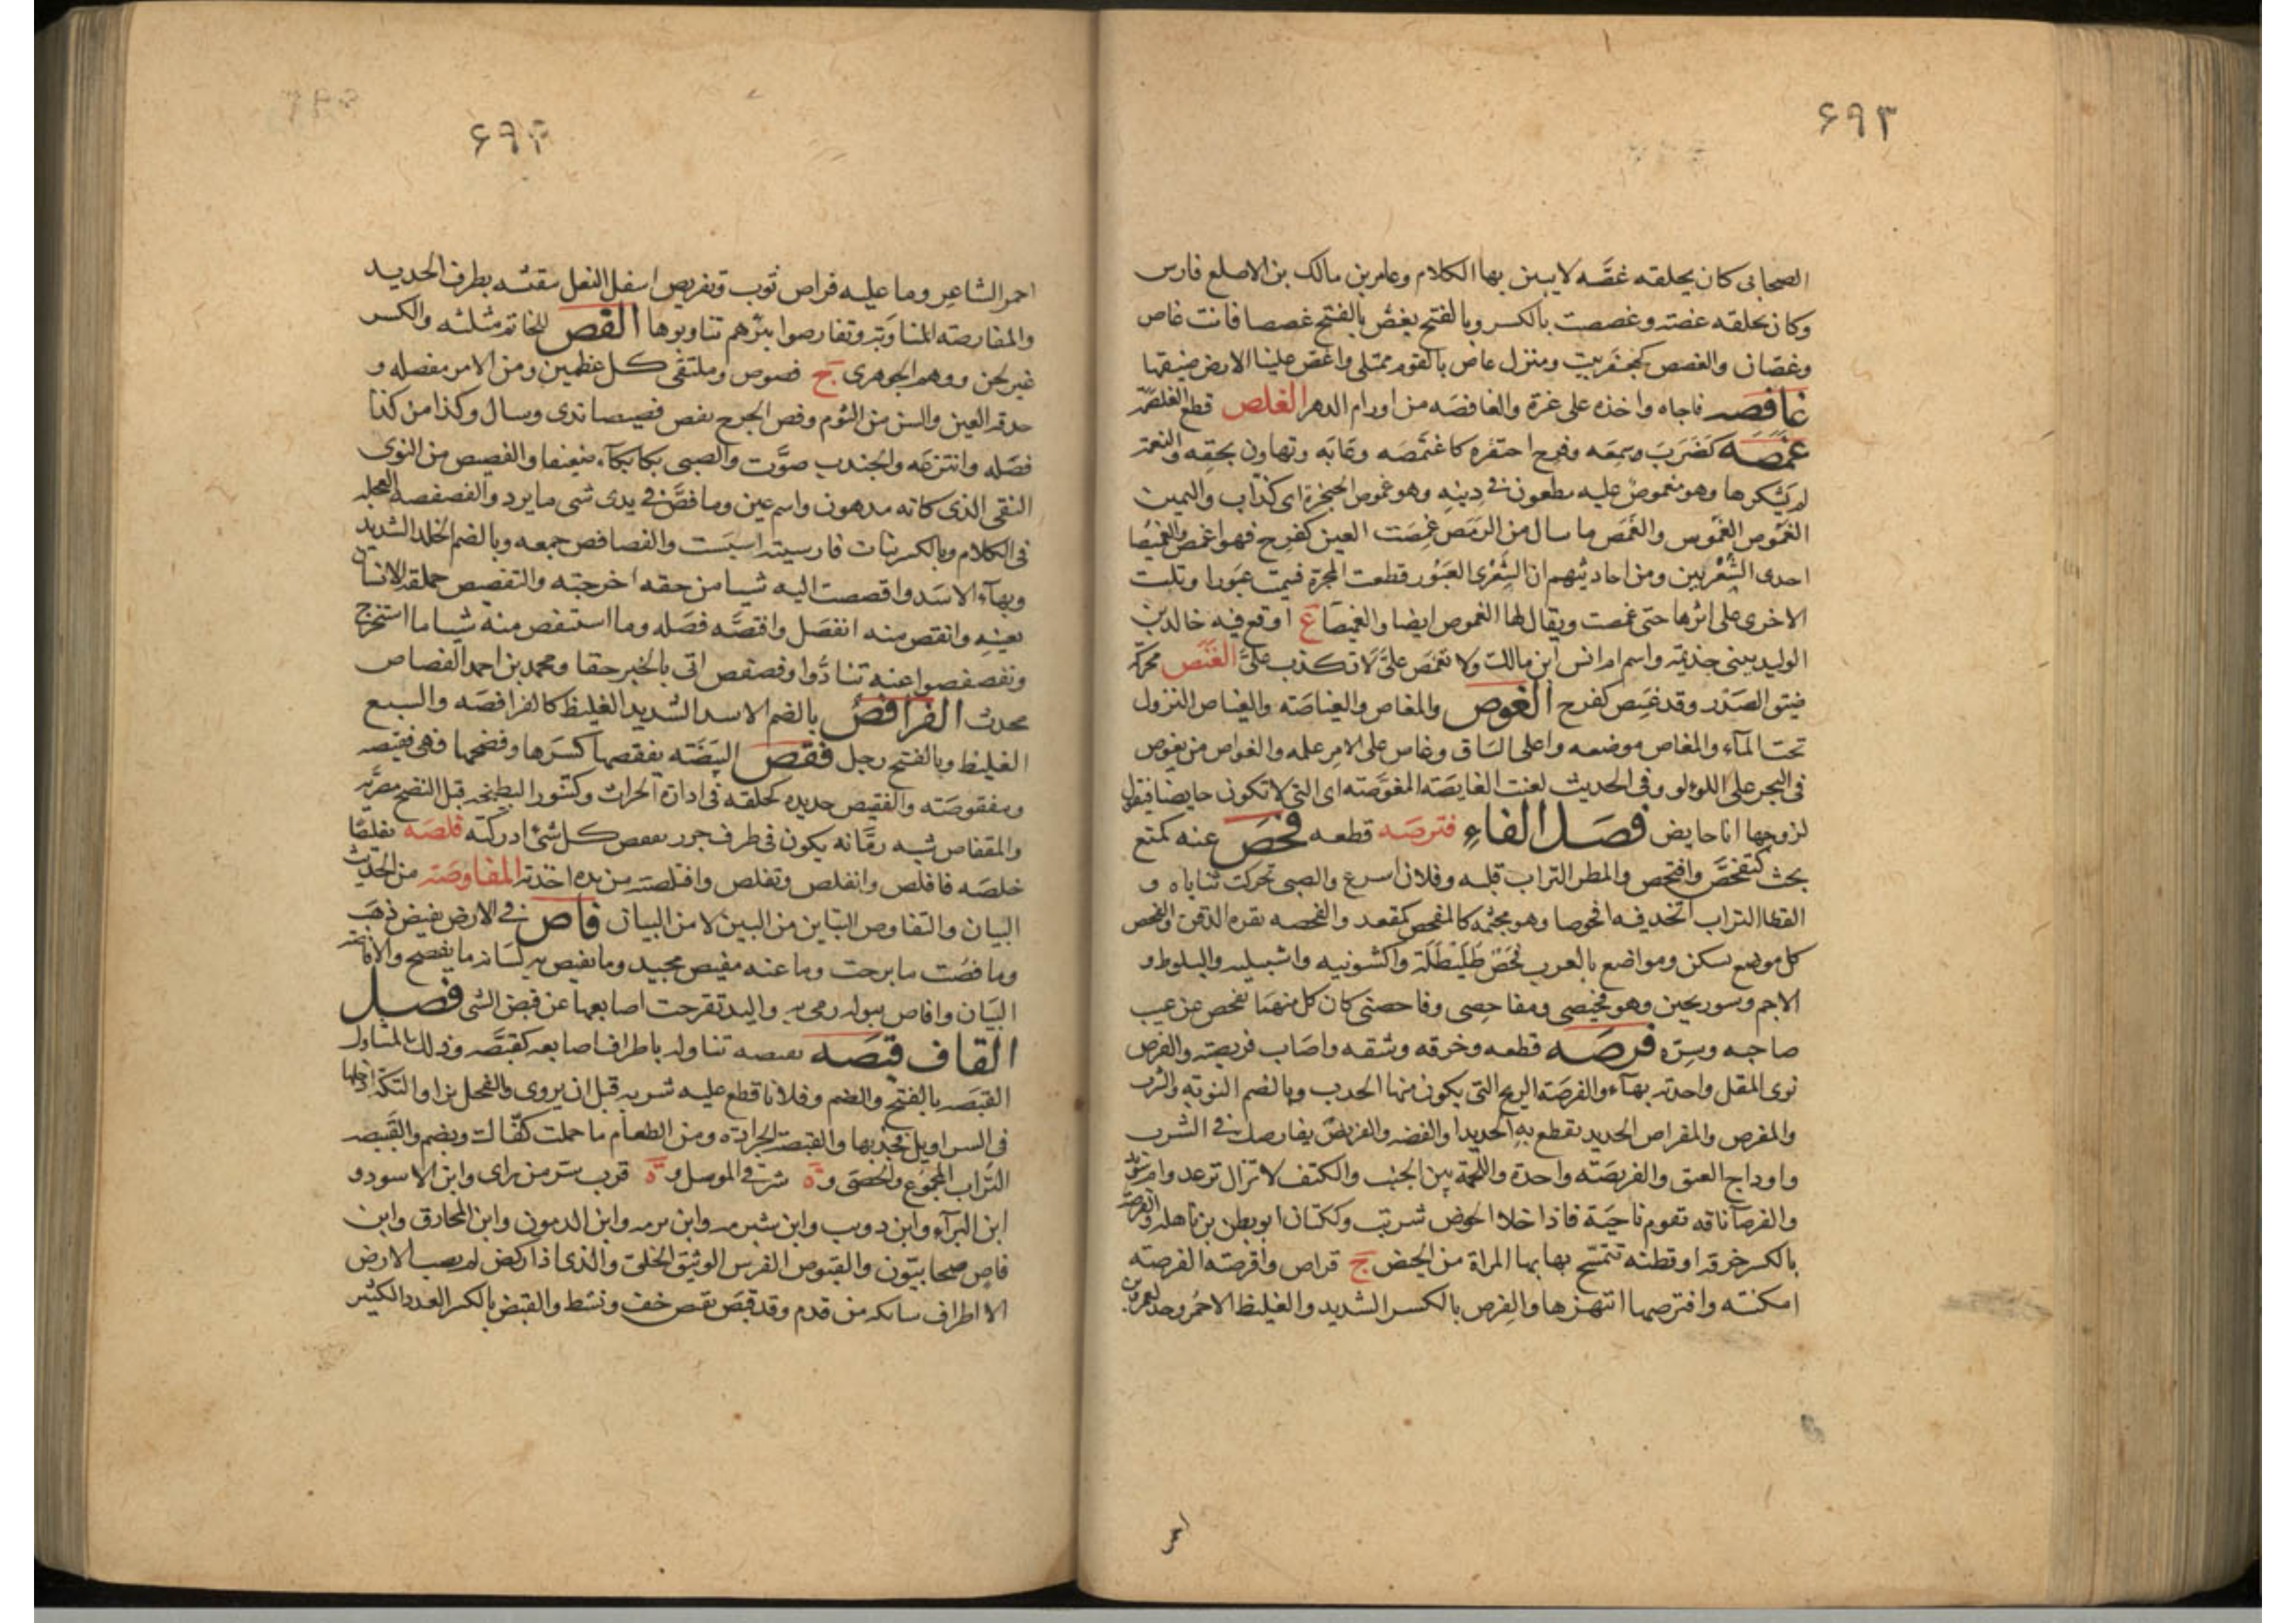 ۶۹۳
الصحابى كان بحلقه غصّه لا يبين بها الكلام وعامر بن مالك بن الاصلع فارس
وكان بحلقه غصته وغصصت بالكسر وبالفتح بغصّ بالفتح غصصا فانت غاص
وغصّان والغصص كجعفر بيت ومنزل غاص بالقوم ممتلى واغصّ علينا الارض ضيقها
غافصه فاجاه واخذه على غرة والغافصه من اورام الدهر الغلص قطع الغلصمة
غمصه كضرب وسمعه وفرح احتقره كاغتمصه وعابه وتهاون بحقه والنعمة
لم يشكرها وهو مغموص عليه مطعون فى دينه وهو غموص الحنجرة اى كذاب واليمين
الغموص الغموس والغمص ما سال من الرمص غمصت العين كفرح فهو اغمص والغميصا
احدى الشعريين ومن احاديثهم ان الشعرى العبور قطعت المجرة فسميت عبورا وبكت
الاخرى على اثرها حتى غمصت ويقال لها الغموص ايضا والغميصا ع اوقع فيه خالد بن
الوليد ببنى جذيمه واسم ام انس ابن مالك ولا تغمص علىّ لا تكذب علىّ الغنص محركة
ضيق الصدر وقد غنص كفرح الغوص والمغاص والغياصه والغياص النزول
تحت الماء والمغاص موضعه واعلى الساق وغاص على الامر علمه والغواص من يغوص
فى البحر على اللولو وفى الحديث لعنت الغايصه المغوصه اى التى لا تكون حايضا فتقول
لزوجها انا حايض فصل الفاء فترصه قطعه فحص عنه كمنع
بحث كتفحّص وافتحص والمطر التراب قلبه وفلان اسرع والصبى تحركت ثناياه و
القطا التراب اتخذ فيه افحوصا وهو مجثمه كالمفحص كمقعد والفحصه نقرة الذقن والفحص
كل موضع سكن ومواضع بالعرب فحص طليطلة واكشونيه واشبيليه والبلوط و
الاجم وسورنجين وهو فحيصى ومفاحصى وفاحصنى كان كل منهما يفحص عن عيب
صاحبه وسره فرصه قطعه وخرقه وشقه واصاب فريصته والفرص
نوى المقل واحدته بهاء والفرصه الريح التى يكون منها الحدب وبالضم النوبة والشرب
والمفرص والمفراص الحديد يقطع به الحديد او الفضه والفريص يفارصك فى الشرب
واوداج العنق والفريصه واحدة واللحمة بين الجنب والكتف لا تزال ترعد وام سويد
والفرصآ ناقه تقوم ناحية فاذا خلا الحوض شربت وككتان ابو بطن بن باهله والفرصة
بالكسر خرقه او قطنه تتمسح بها بها المراة من الحيض ج فراص وافرصته الفرصه
امكنته وافترصها انتهزها والفرص بالكسر الشديد والغليظ الاحمر وجد لعمرو بن
احمر
۶۹۴
احمر الشاعر وما عليه فراص ثوب وتفريص اسفل النعل تنقشه بطرف الحديد
والمفارصه المناوبة وتفارصوا بئرهم تناوبوها الفص للخاتم مثلثه والكسر
غير لحن ووهم الجوهرى ج فصوص وملتقى كل عظمين ومن الامر مفصله و
حدقه العين والسن من الثوم وفص الجرح يفص فصيصا ندى وسال وكذا من كذا
فصله وانتزعه والجندب صوّت والصبى بكا بكاء ضعيفا والفصيص من النوى
النقى الذى كانه مدهون واسم عين وما فصّ فى يدى شى ما برد والفصفصه العجله
فى الكلام وبالكسر نبات فارسيته اسبست والفصافص جمعه وبالضم الجلد الشديد
وبهآء الاسد وافصصت اليه شيا من حقه اخرجته والتفصص حملقه الانسان
بعينه وانفص منه انفصل وافتصّه فصله وما استفص منه شيا ما استخرج
وتفصفصوا عنه تنادّوا وفصفص اتى بالخبر حقا ومحمد بن احمد الفصاص
محدث الفرافص بالضم الاسد الشديد الغليظ كالفرافصه والسبع
الغليظ وبالفتح رجل فقص البيضه يفقصها كسرها وفضخها فهى فقيصه
ومفقوصه والفقيص حديده كحلقه فى اداة الحراث وكتنور البطيخه قبل النضج مصرية
والمفقاص شبه رمانه يكون فى طرف جرز تفقص كل شئ ادركته فلصه تفليصا
خلصه فافلص وانفلص وتفلص وافتلصته من يده اخذته المفاوصه من الحديث
البيان والتفاوص التباين من البين لا من البيان فاص فى الارض يفيص ذهب
وما فصت ما برحت وما عنه مفيص محيد وما يفيص به لسانه ما يفصح والافاصه
البيان وافاص ببوله رمى به واليد تفرجت اصابعها عن قبض الشى فصل
القاف قبصه يقبصه تناوله باطراف اصابعه كقبّصه وذلك المتناول
القبصه بالفتح والضم وفلانا قطع عليه شربه قبل ان يروى والفحل نزا والتكة ادخلها
فى السراويل فجذبها والقبصة الجرادة ومن الطعام ما حملت كفّاك ويضم والقبيصه
التراب المجموع والحصى وة شرقى الموصل وة قرب سر من راى وابن الاسود و
ابن البرآء وابن ذويب وابن شبرمه وابن برمه وابن الدمون وابن المخارق وابن
قاص صحابيون والقبوص الفرس الوثيق الخلق والذى اذا ركض لم يصب الارض
الا اطراف سنابكه من قدم وقد قبص يقبص خف ونشط والقبض بالكسر العدد الكثير